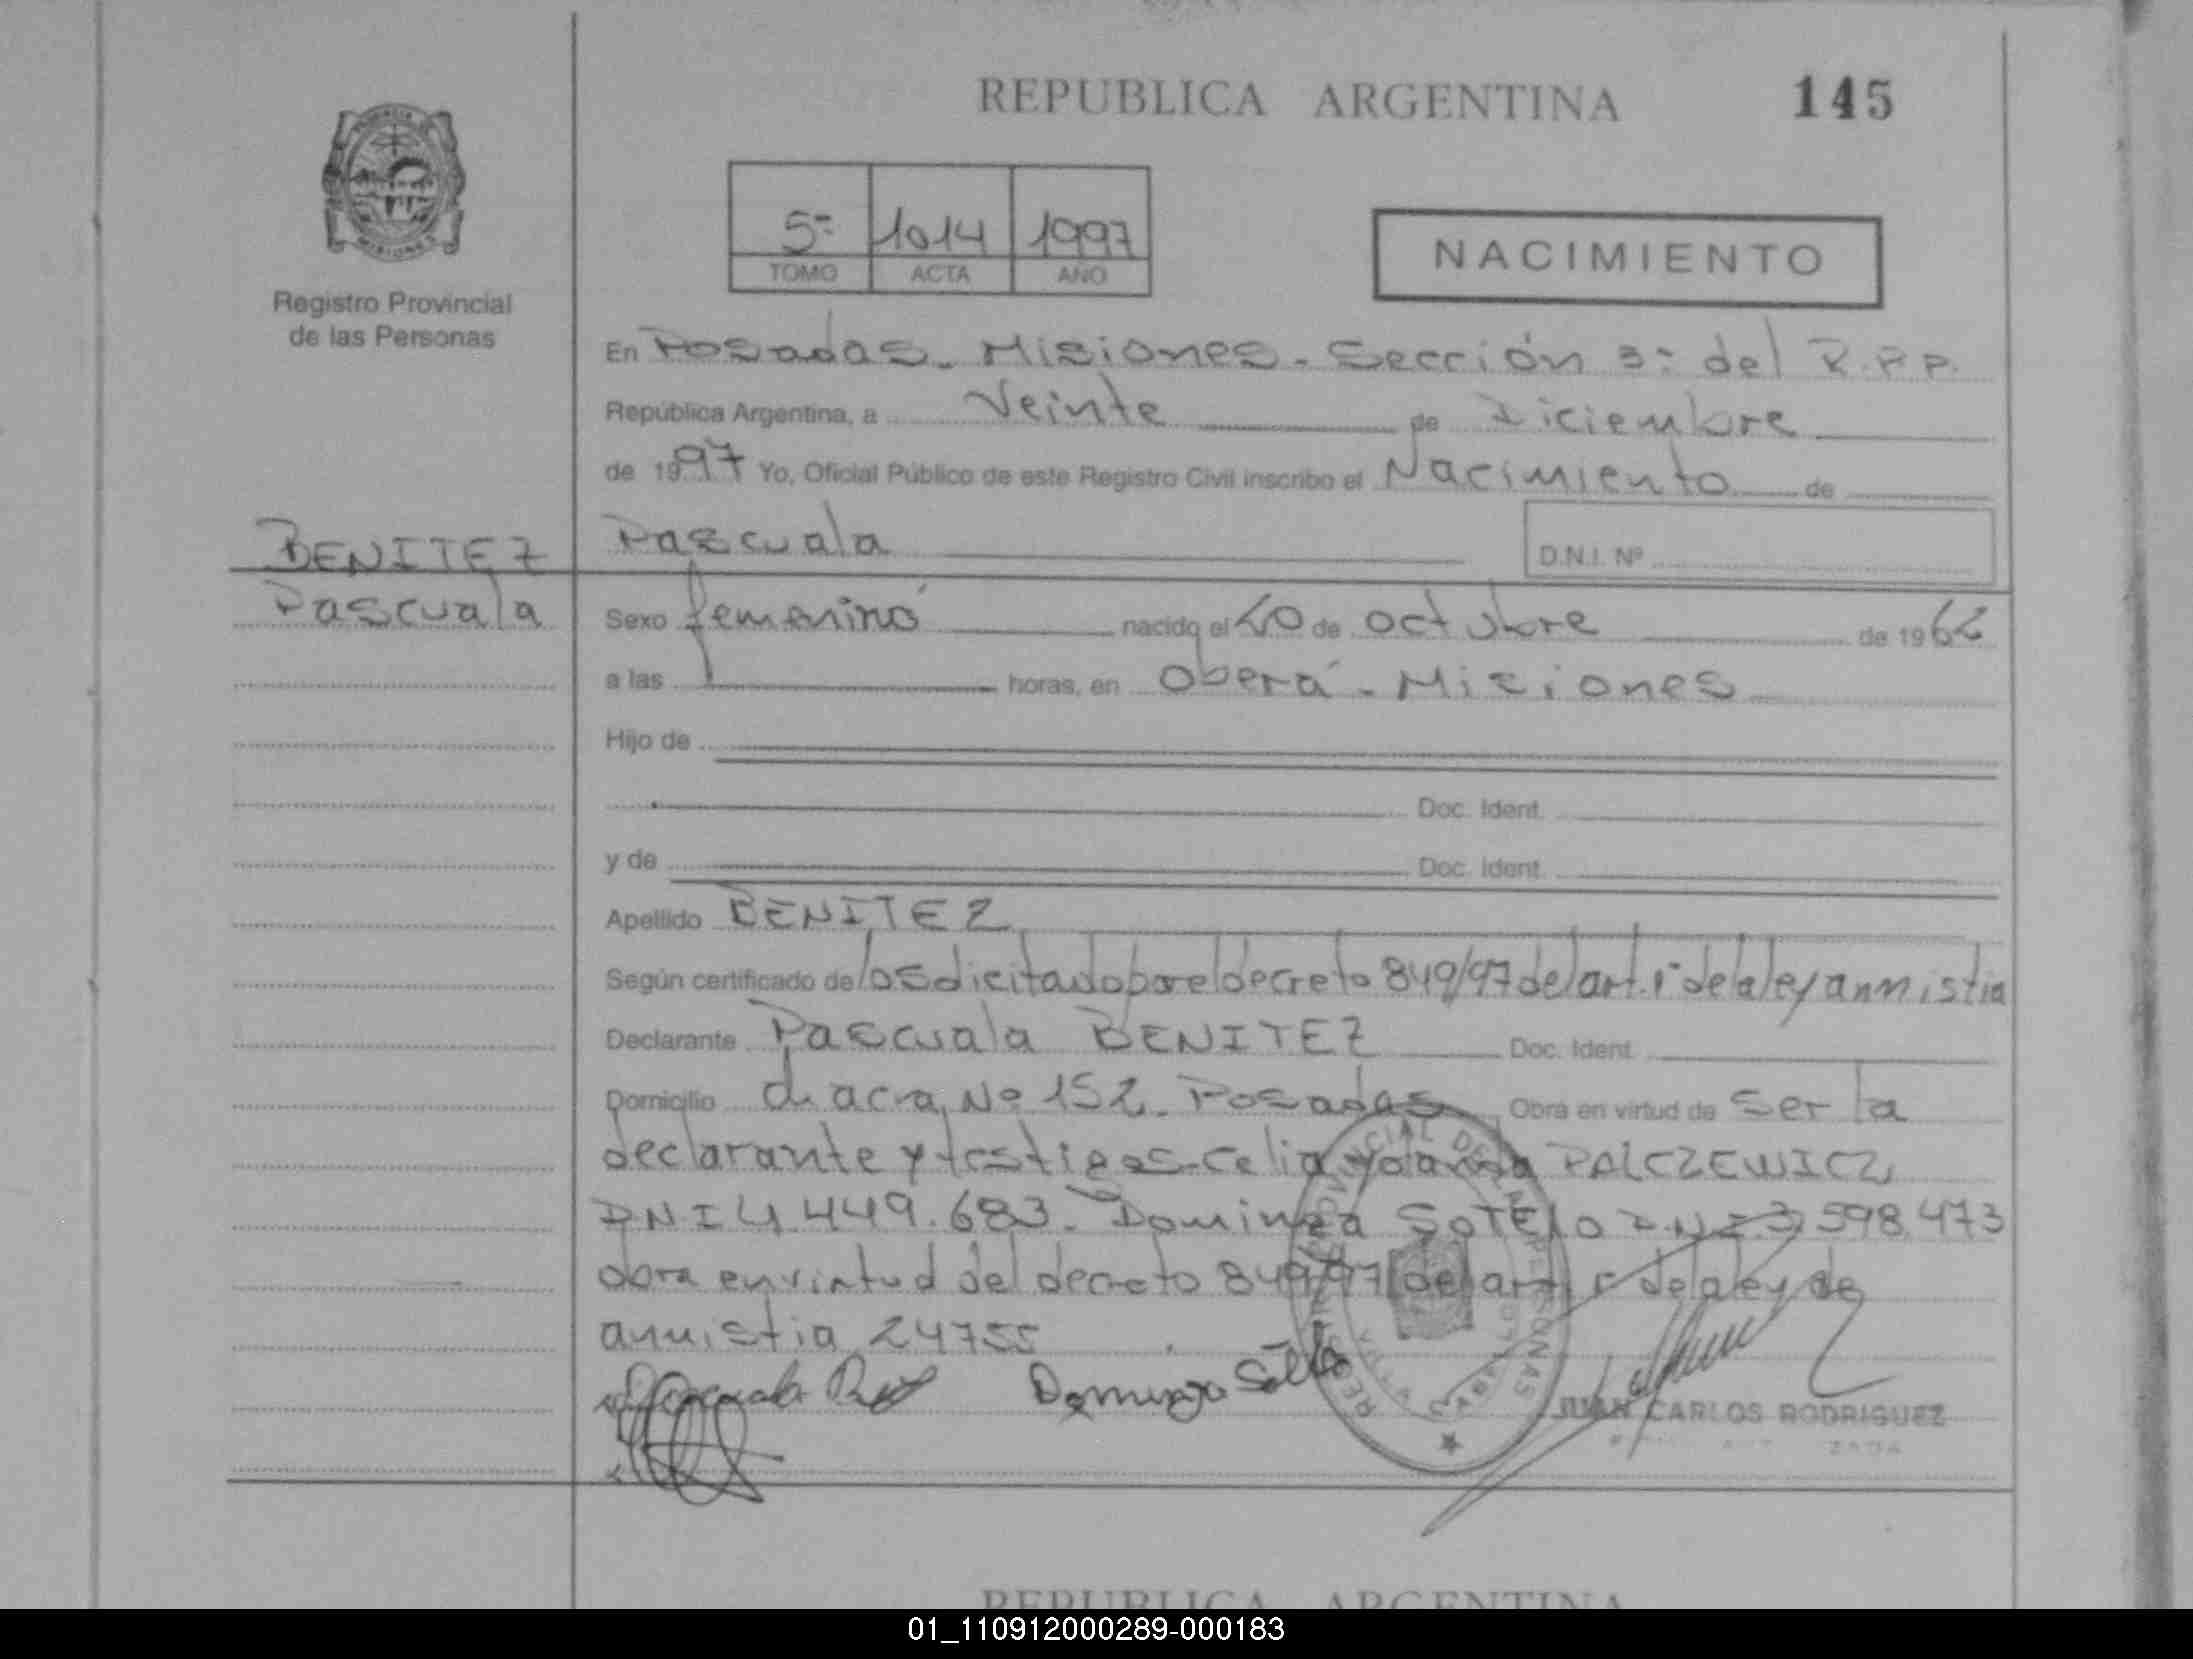 REPUBLICA ARGENTINA 145
5º 1014 1997
TOMO ACTA AÑO
NACIMIENTO
Registro Provincial
de las Personas
En Posadas - Misiones - Sección 3º del R.P.P.
República Argentina, a Veinte de Diciembre
de 1997 Yo, Oficial Público de este Registro Civil inscribo el Nacimiento de
BENITEZ
Pascuala
Pascuala
D.N.I. Nº
Sexo femenino nacido el 20 de octubre de 1962
a las horas, en Oberá - Misiones
Hijo de
Doc. Ident.
y de Doc. Ident.
Apellido BENITEZ
Según certificado de lo sdicitado por el decreto 849/97 del art. 1º de la ley annistia
Declarante Pascuala BENITEZ Doc. Ident.
Domicilio chacra Nº 152. Posadas Obra en virtud de ser la
declarante y testigos - Celia Yolanda PALCZEWICZ
DNI 4.449.683 - Dominga SOTELO D.N.I 3.598.473
obra en virtud del decreto 849/97 del art. 1º de la ley de
annistia 24755
Dominga Sotelo
JUAN CARLOS RODRIGUEZ
REGISTRO PROVINCIAL DE LAS PERSONAS
REPUBLICA ARGENTINA
01_110912000289-000183